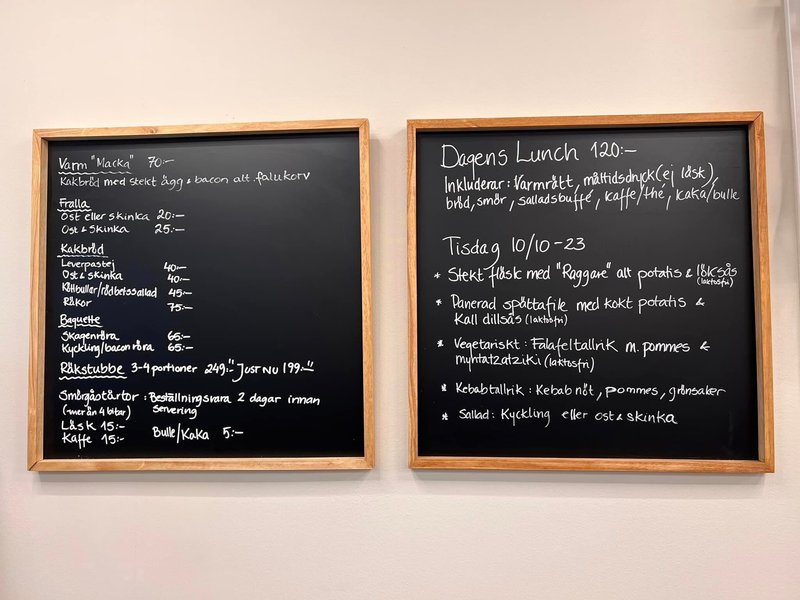 Varm "Macka" 70:-
Kakbröd med stekt ägg & bacon alt. falukorv
Fralla
Ost eller skinka 20:-
Ost & Skinka 25:-
Kakbröd
Leverpastej 40:-
Ost & skinka 40:-
Köttbullar/rödbetssallad 45:-
Räkor 75:-
Baguette
Skagenröra 65:-
Kyckling/baconröra 65:-
Räkstubbe 3-4 portioner 249:- Just NU 199:-
Smörgåstårtor: Beställningsvara 2 dagar innan
(mer än 4 bitar) servering
Läsk 15:-
Kaffe 15:- Bulle/Kaka 5:-
Dagens Lunch 120:-
Inkluderar: Varmrätt, måltidsdryck (ej läsk),
bröd, smör, salladsbuffé, kaffe/thé, kaka/bulle
Tisdag 10/10-23
* Stekt fläsk med "Raggare" alt potatis & löksås
(laktosfri)
* Panerad spättafilé med kokt potatis &
Kall dillsås (laktosfri)
* Vegetariskt: Falafeltallrik m. pommes &
myntatzatziki (laktosfri)
* Kebabtallrik: Kebab nöt, pommes, grönsaker
* Sallad: Kyckling eller ost & skinka